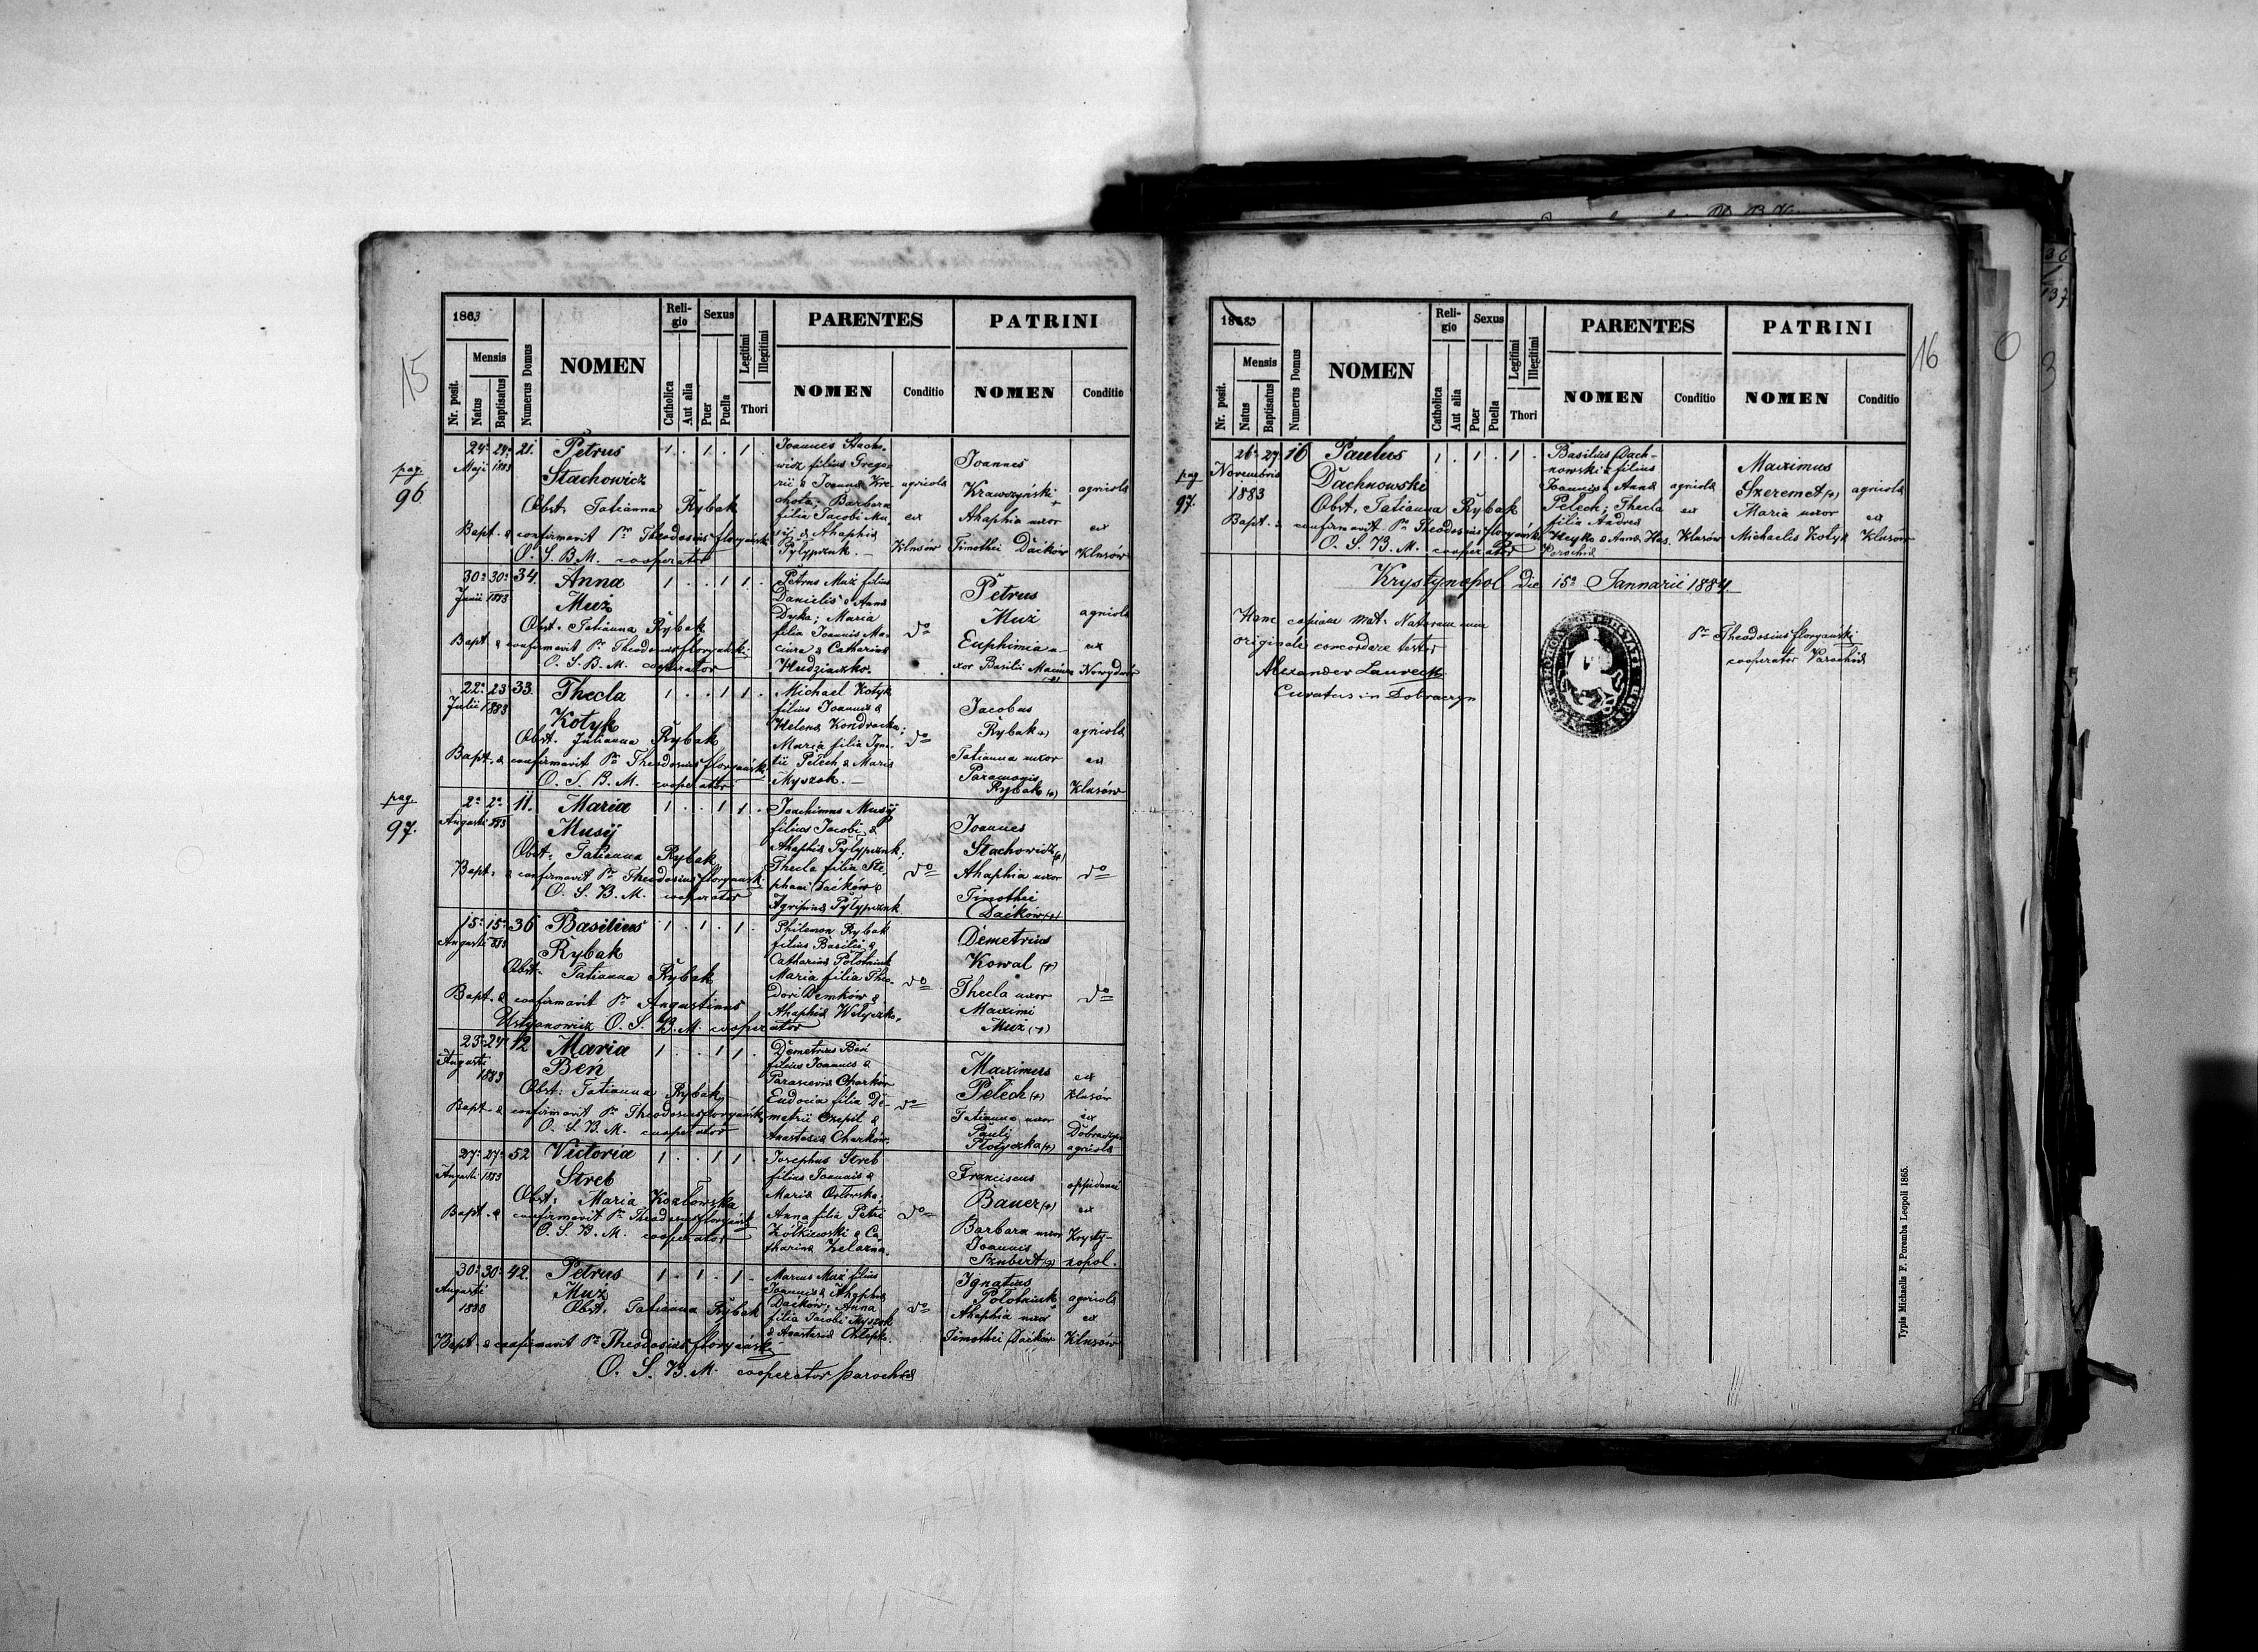 15
1883
Nr. posit.
Mensis
Natus
Baptisatus
Numerus Domus
NOMEN
Religio
Catholica
Aut alia
Sexus
Puer
Puella
Legitimi
Illegitimi
Thori
PARENTES
NOMEN
Conditio
PATRINI
NOMEN
Conditio
pag.
96
24a 24a 21.
Maji 1883
Petrus
Stachowicz
Obst. Tatianna Rybak
Bapt. & confirmavit Pr Theodosius Floryański
O. S. B. M. cooperator
1 . 1 . 1 .
Joannes Stacho-
wicz filius Grego-
rii & Joanna Kre-
chota; Barbara
filia Jacobi Mu-
sij & Ahaphia
Pylypczuk. –
agricola
ex
Klusów
Joannes
Krawczyński +
Ahaphia uxor
Timothei Daćków
agricola
ex
Klusów
30a 30a 34.
Junii 1883
Anna
Muż
Obst. Tatianna Rybak
Bapt. & confirmavit Pr Theodosius Floryański
O. S. B. M. cooperator
1 . . 1 1 .
Petrus Muż filius
Danielis & Anna
Dyka; Maria
filia Joannis Ma-
ciura & Catharina
Hudziaczko.
do
Petrus
Muż
Euphimia u-
xor Basilii Maciura
agricola
ex
Nowydwór
22a 23 33.
Julii 1883
Thecla
Kotyk
Obst. Julianna Rybak
Bapt. & confirmavit Pr Theodosius Floryański
O. S. B. M. cooperator
1 . . 1 1 .
Michael Kotyk
filius Joannis &
Helena Kondracka;
Maria filia Igna-
tii Pelech & Maria
Myszok. –
do
Jacobus
Rybak (+)
Tatianna uxor
Rybak (+)
agricola
ex
Klusów
pag.
97.
2a 2a 11.
Augusti 883
Maria
Musij
Obst. Tatianna Rybak
Bapt. & confirmavit Pr Theodosius Floryański
O. S. B. M. cooperator
1 . . 1 1 .
Joachimus Musij
filius Jacobi &
Ahaphia Pylypczuk;
Thecla filia Ste-
phani Daćków &
Agripina Pylypczuk
do
Joannes
Stachowicz (+)
Ahaphia uxor
Timothei
Daćków (+)
do
15a 15a 36
Augusti 883
Basilius
Rybak
Obst. Tatianna Rybak
Bapt. & confirmavit Pr Augustinus
Ustyanowicz O. S. B. M. cooperator
1 . 1 . 1 .
Philemon Rybak
filius Basilii &
Catharina Połotniuk
Maria filia Theo-
dori Demków &
Ahaphia Welyczko.
do
Demetrius
Kowal (+)
Thecla uxor
Maximi
Muż (+)
do
23a 24a 12
Augusti
1883
Maria
Beń
Obst. Tatianna Rybak
Bapt. & confirmavit Pr Theodosius Floryański
O. S. B. M. cooperator
1 . . 1 1 .
Demetrius Beń
filius Joannis &
Parascevia Charków
Eudocia filia De-
metrii Czepil &
Anastasia Charków.
do
Maximus
Pelech (+)
Tatianna uxor
Pauli
Płotyczka (+)
ex
Klusów
ex
Dobraczyn
agricola
27a 27a 52
Augusti 1883
Victoria
Streb
Obst. Maria Kozłowska
Bapt. & confirmavit Pr Theodosius Floryański
O. S. B. M. cooperator
1 . . 1 1 .
Josephus Streb
filius Joannis &
Maria Orłowska;
Anna filia Petri
Żółkiewski & Ca-
tharina Żelazna.
do
Franciscus
Bauer (+)
Barbara uxor
Joannis
Szubert (+)
oppidani
ex
Krysty-
nopol.
30a 30a 42.
Augusti
1883
Petrus
Muż
Obst. Tatianna Rybak
Bapt. & confirmavit Pr Theodosius Floryański
O. S. B. M. cooperator parochiæ
1 . 1 . 1 .
Marcus Muż filius
Joannis & Ahaphia
Daćków; Anna
filia Jacobi Myszok
& Anastasia
do
Ignatius
Połotniuk
Ahaphia uxor
Timothei Daćków
agricola
ex
Klusów
16
1883
Nr. posit.
Mensis
Natus
Baptisatus
Numerus Domus
NOMEN
Religio
Catholica
Aut alia
Sexus
Puer
Puella
Legitimi
Illegitimi
Thori
PARENTES
NOMEN
Conditio
PATRINI
NOMEN
Conditio
pag
97.
26a 27 16
Novembris
1883
Paulus
Dachnowski
Obst. Tatianna Rybak
Bapt. & confirmavit Pr Theodosius Floryański
O. S. B. M. cooperator Parochiæ
1 . 1 . 1 .
Basilius Dach-
nowski filius
Joannis & Anna
Pelech; Thecla
filia Andrea
agricola
ex
Klusów
Maximus
Szeremet (+)
Maria uxor
Michaelis Kotyk
agricola
ex
Klusów
Krystynopol Die 15a Januarii 1884.
Hanc copiam Mat. Natorum cum
originali concordare testor
Alexander Laureck
Curatus in Dobraczyn
Pr Theodosius Floryański
cooperator Parochiæ
Typis Michaelis F. Poremba Leopoli 1865.